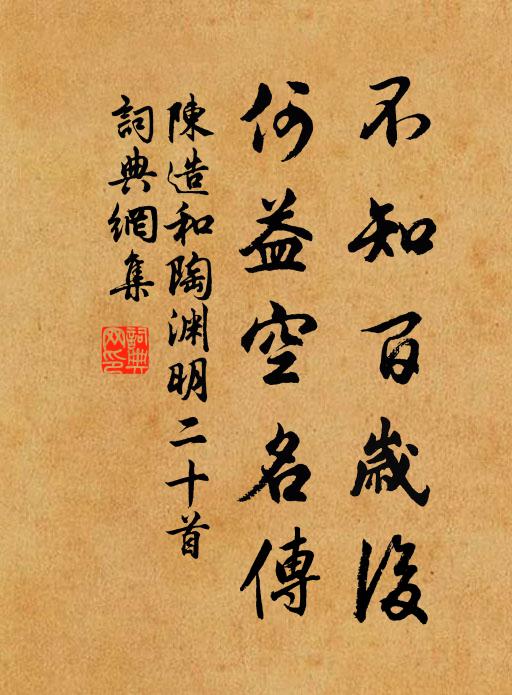 不知百歲後
何益空名傳
陳造和陶淵明二十首
詞典網集
詞典
网印